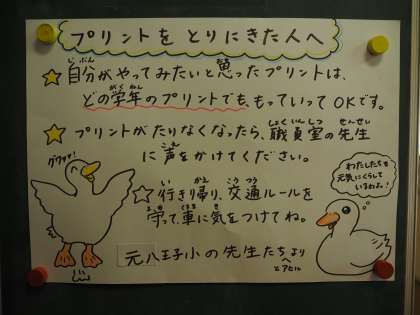 プリントを とりにきた人へ
☆自分がやってみたいと思ったプリントは、
どの学年のプリントでも、もっていってOKです。
☆プリントがたりなくなったら、職員室の先生
に声をかけてください。
☆行き帰り、交通ルールを
守って、車に気をつけてね。
元八王子小の先生たちより
とアヒル
グワァッ!
わたしたちも
元気にくらして
いるわよ!